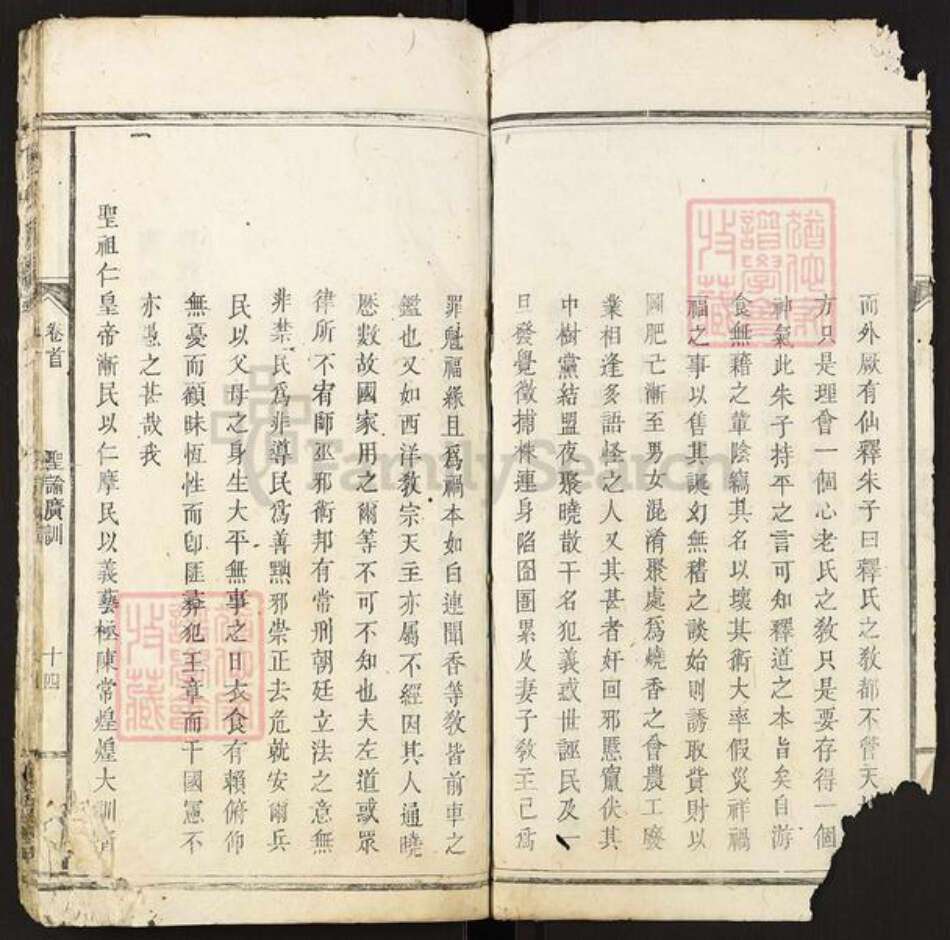 而外厥有仙釋朱子曰釋氏之教都不管天
方只是理會一個心老氏之教只是要存得一個
神氣此朱子持平之言可知釋道之本旨矣自游
食無藉之輩陰竊其名以壞其術大率假災祥禍
福之事以售其誕幻無稽之談始則誘取貲財以
圖肥亡漸至男女混淆聚處為燒香之會農工廢
業相逢多語怪之人又其甚者奸回邪慝竄伏其
中樹黨結盟夜聚曉散干名犯義惑世誣民及一
旦發覺徵捕株連身陷囹圄累及妻子教主已為
罪魁福緣且為禍本如白連聞香等教皆前車之
鑑也又如西洋教宗天主亦屬不經因其人通曉
歷數故國家用之爾等不可不知也夫左道惑眾
律所不宥師巫邪術邦有常刑朝廷立法之意無
非禁民為非導民為善黜邪崇正去危就安爾兵
民以父母之身生大平無事之日衣食有賴俯仰
無憂而顧昧恆性而卽匪彞犯王章而干國憲不
亦愚之甚哉我
聖祖仁皇帝漸民以仁摩民以義藝極陳常煌煌大訓
卷首
聖諭廣訓
十四
FamilySearch